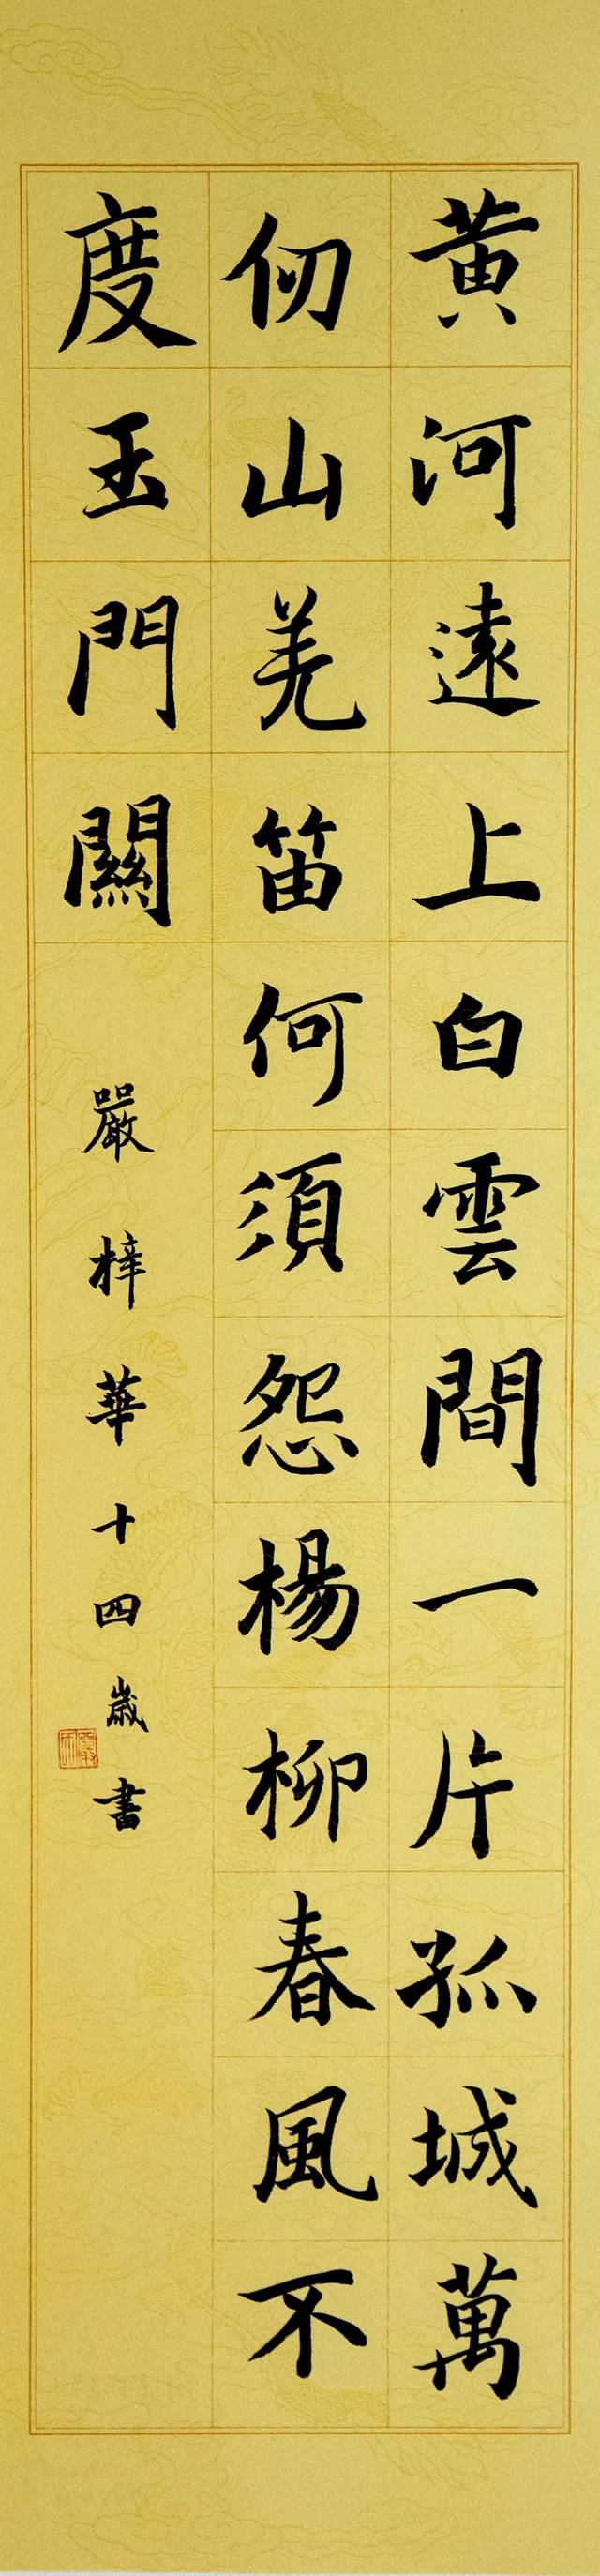 黃河遠上白雲間一片孤城萬
仞山羌笛何須怨楊柳春風不
度玉門關
嚴梓華十四歲書